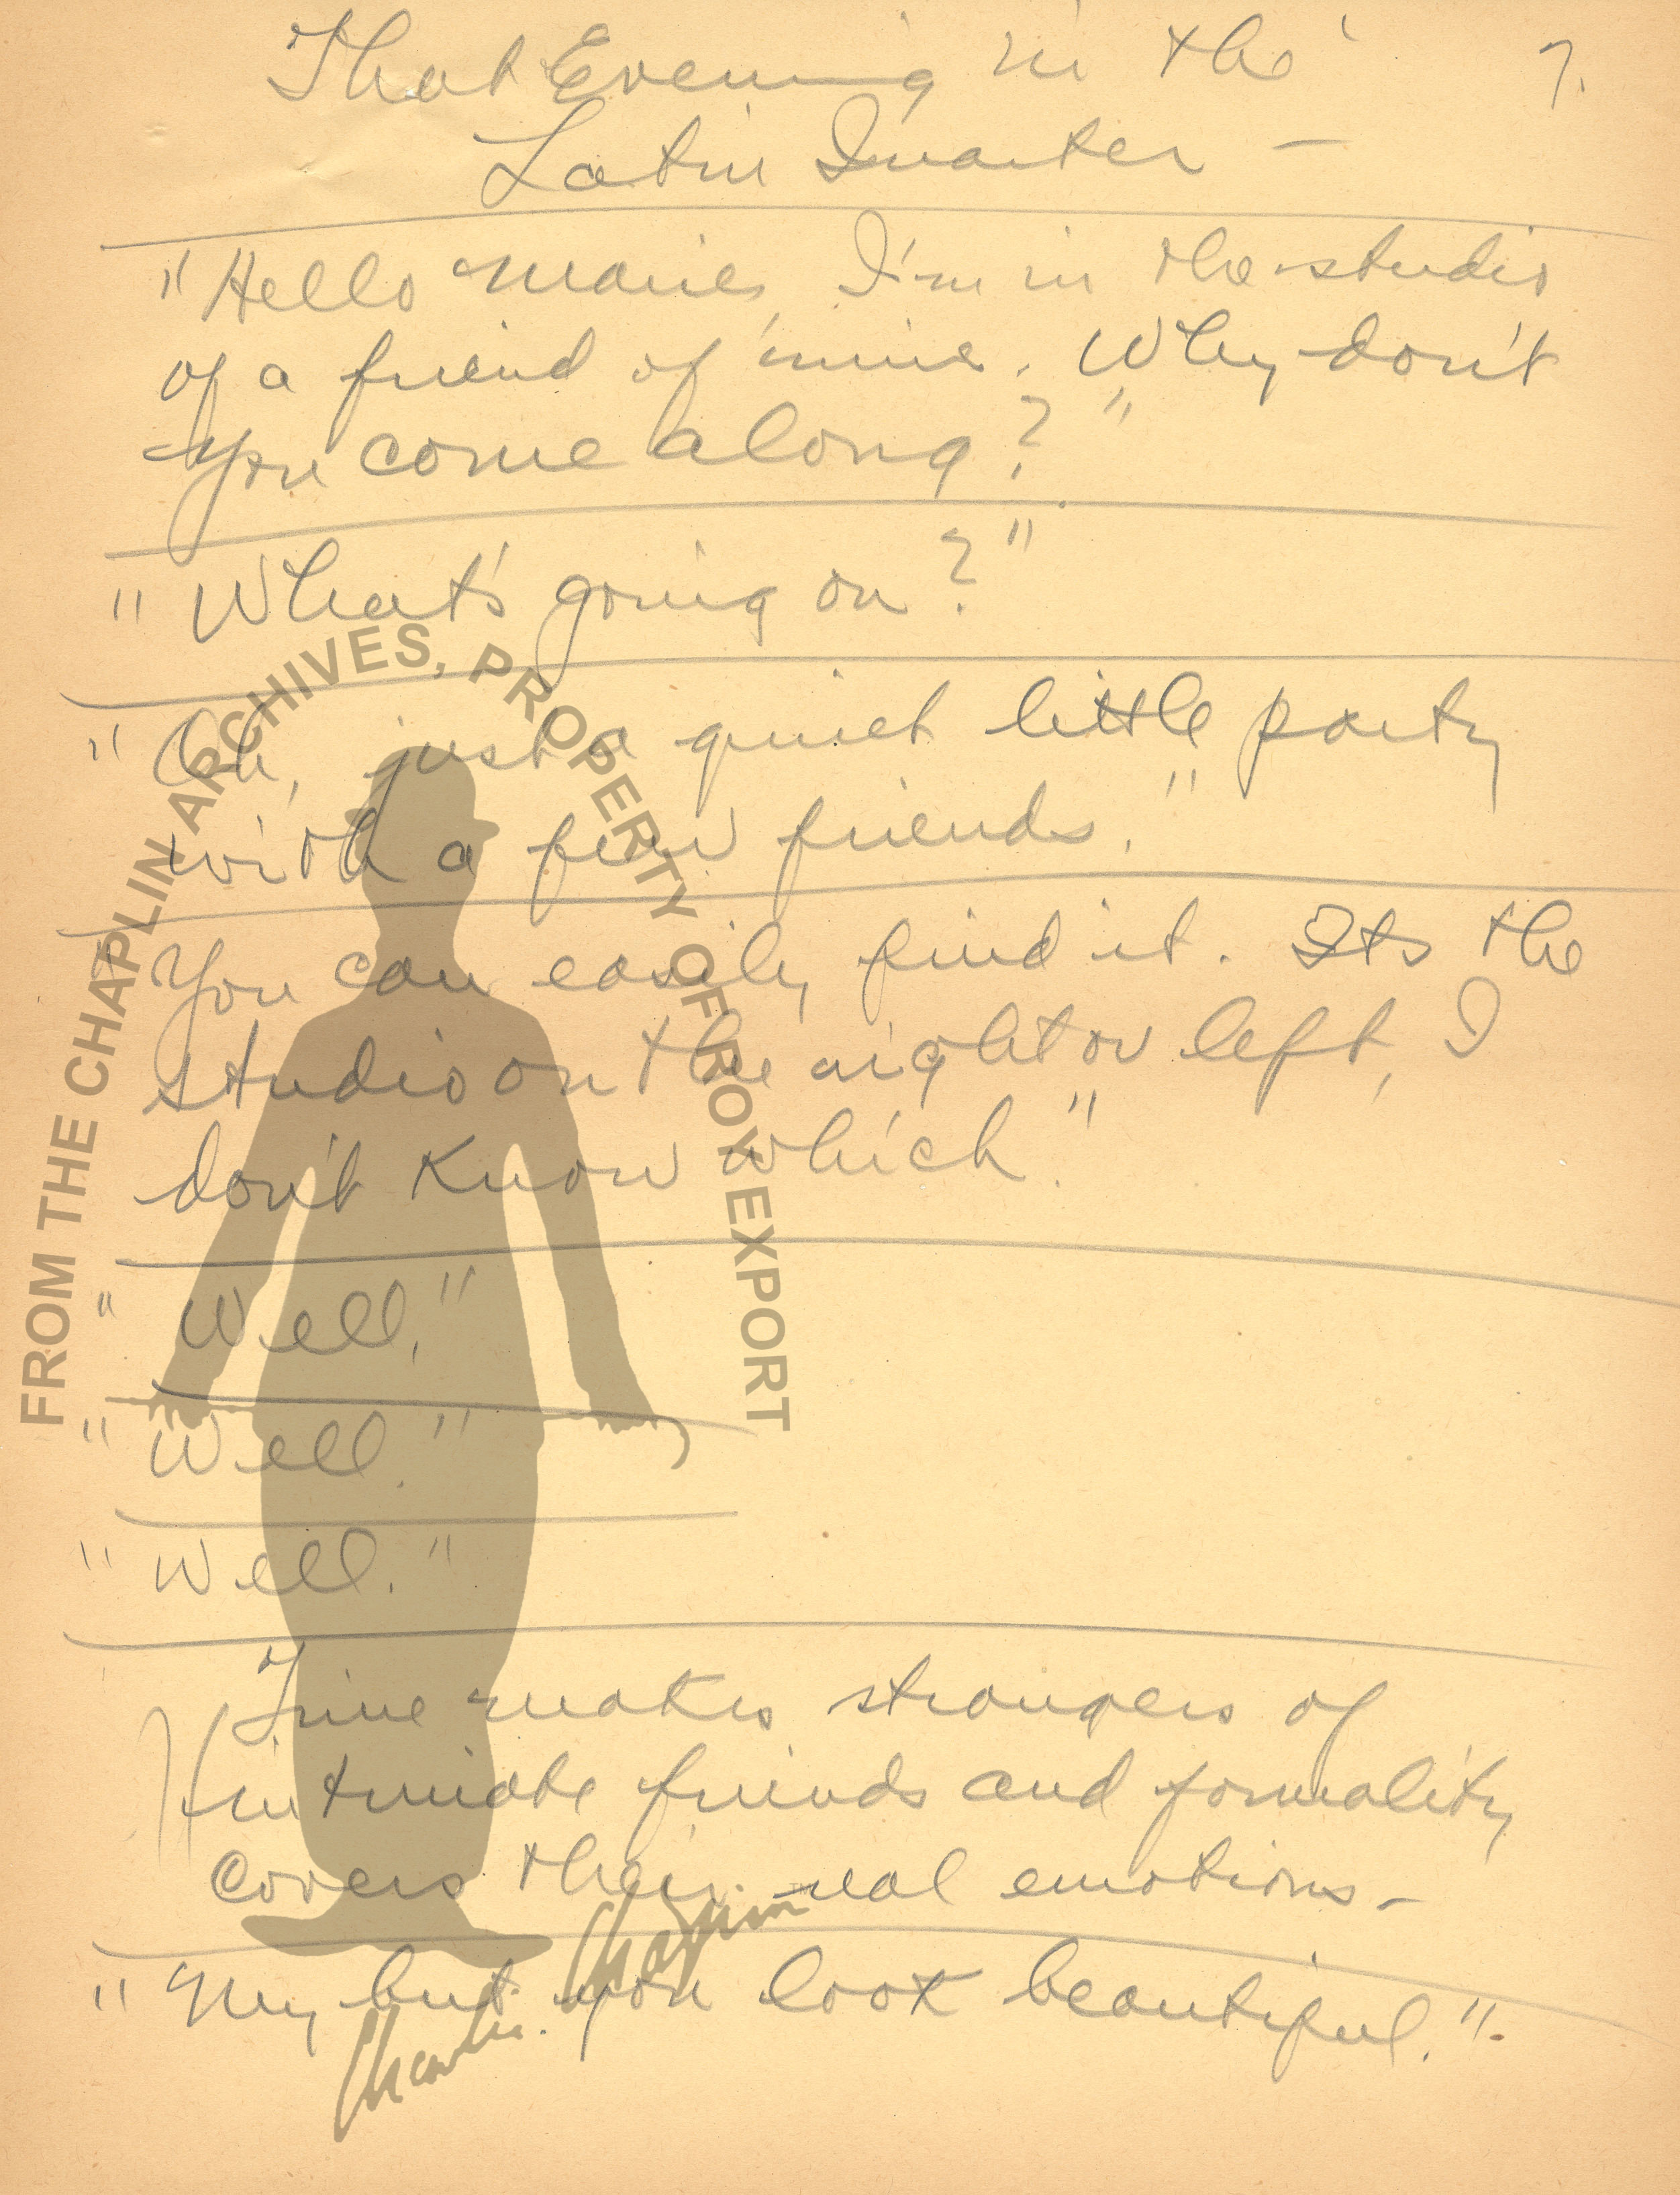 That Evening in the 7.
Latin Quarter -
"Hello Marie, I'm in the studio
of a friend of mine. Why don't
you come along?"
"What's going on?"
"Oh, just a quiet little party
with a few friends."
You can easily find it. Its the
studio on the right or left, I
don't know which."
"Well."
"Well."
"Well."
Time makes strangers of
intimate friends and formality
covers their real emotions -
"My but you look beautiful."
FROM THE CHAPLIN ARCHIVES, PROPERTY OF ROY EXPORT
Charlie Chaplin